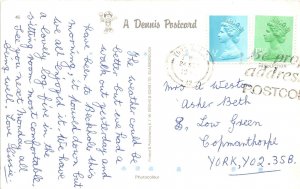 A Dennis Postcard
The weather could be
better but we had a
walk out yesterday and
have been to Methodist this
morning, it poured down but
we all enjoyed it. We have
a lovely log fire in the
sitting room most comfortable
See you next Monday all
being well. Love Annie
Be pro
address
POSTCO
Mrs A Weston
Asher Beth
8, Low Green
Copmanthorpe
YORK, YO2.3SB.
Photocolour